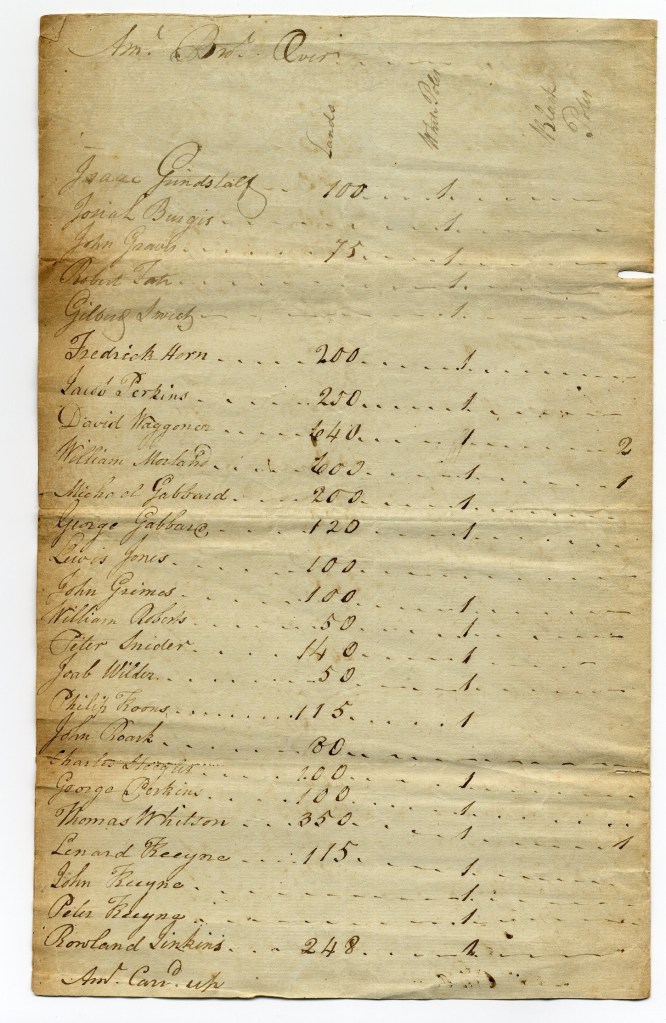 Amt. Brot. Over
Lands White Poles Black Poles
Isaac Grindstaff 100 1
Josiah Burgis 1
John Graves 75 1
Robert Tate 1
Gilbert Sweet 1
Fredrick Horn 200 1
Jacob Perkins 250 1
David Waggoner 640 1 2
William Morland 600 1 1
Michael Gabbard 200 1
George Gabbard 120 1
Lewis Jones 100
John Grimes 100 1
William Robers 50 1
Peter Snider 140 1
Joab Wilder 50 1
Philip Koons 115 1
John Roark 80
Charles 100 1
George Perkins 100 1
Thomas Whitson 350 1 1
Lenard Keeyne 115 1
John Keeyne 1
Peter Keeyne 1
Rowland Jinkins 248 1
Amt. Carrd. up